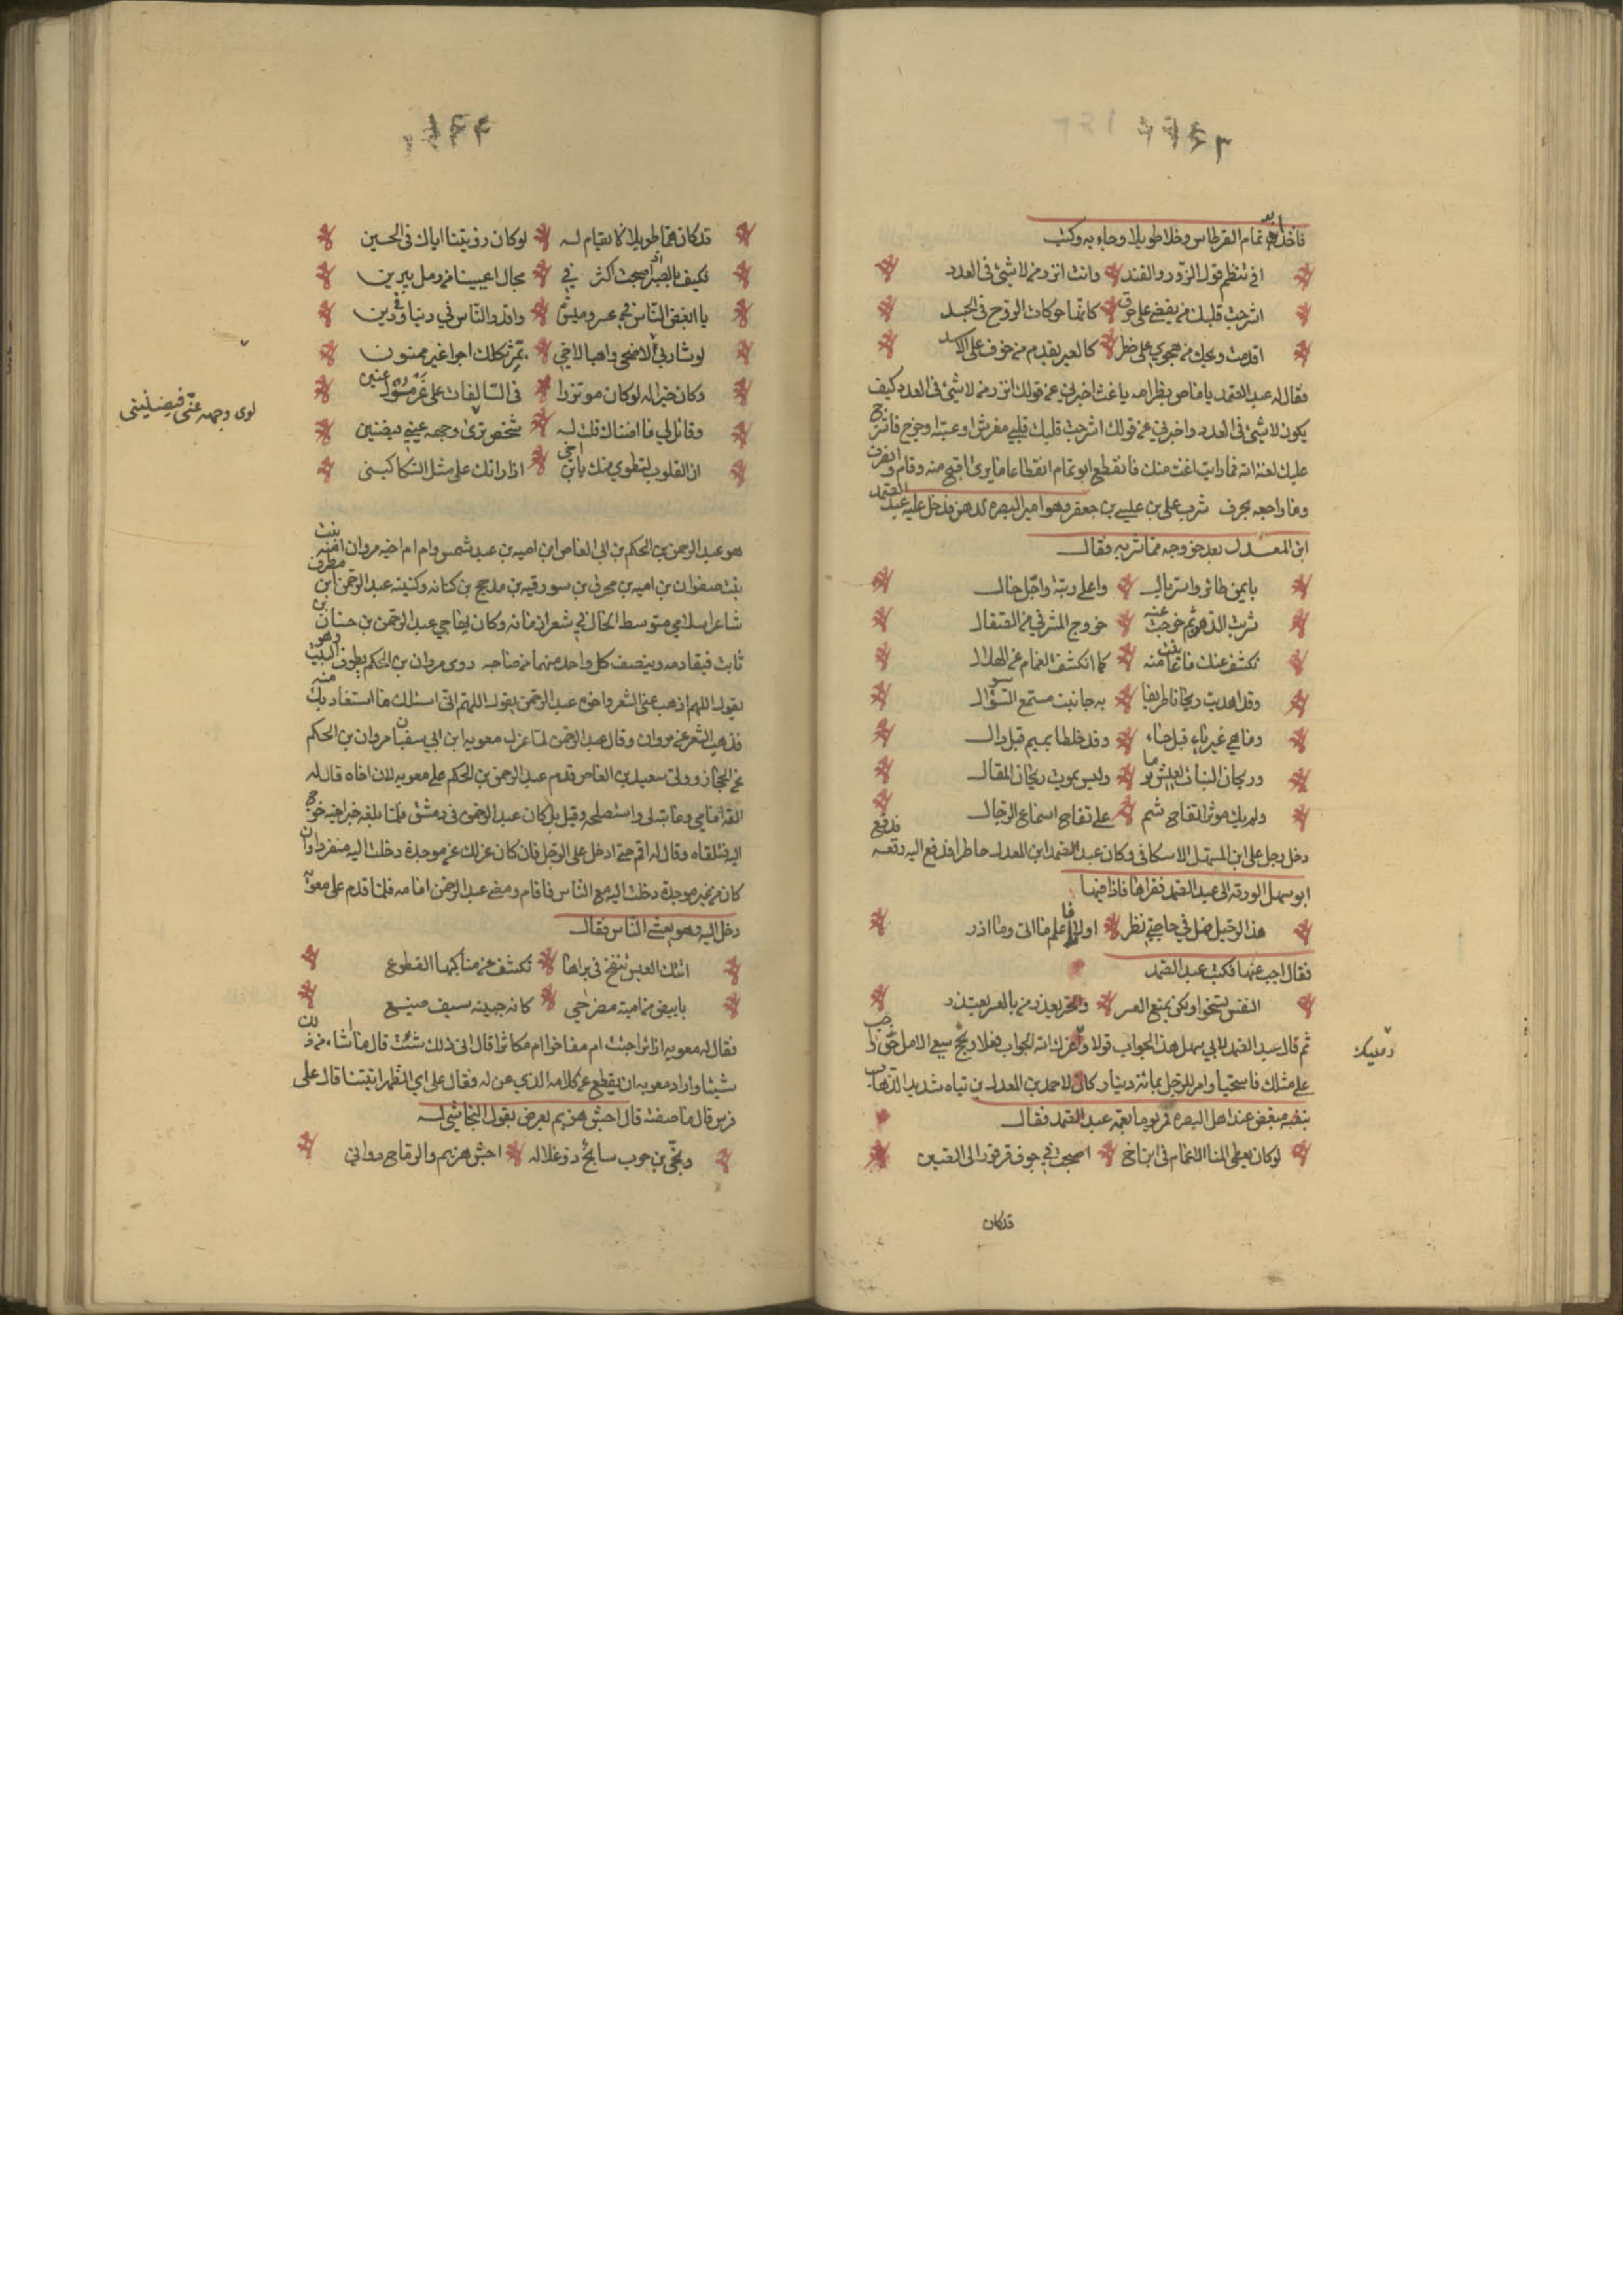 فاخذ ابو تمام القرطاس وخلا طويلا وجاء به وكتب
افي تنظم قول الزور والفند وانت انزر من لا شئ في العدد
اشرجت قلبك من بغضي على حرق كانها حركات الروح في الجسد
اقدمت ويحك من هجوي على خطر كالعير يقدم من خوف على الاسد
فقال له عبد الصمد يا ماص بظر امه يا غث اخبرني عن قولك انزر من لا شئ في العدد كيف
يكون لا شئ في العدد واخبرني عن قولك اشرجت قلبك قلبي مفرش او عيبة او خرج فاشرج
عليك لعنة الله فما رايت اغث منك فانقطع ابو تمام انقطاعا ما يرى اقبح منه وقام وانصرف
وما راجعه بحرف شرب علي بن عيسى بن جعفر وهو امير البصرة الدهن فدخل عليه عبد الصمد
ابن المعدل بعد خروجه مما شربه فقال
بايمن طائر واسر بال واعلى رتبة واجل حال
شربت الدهن ثم خرجت عنه خروج المشرفي من الصقال
تكشف عنك ما عانيت منه كما انكشف الغمام عن الهلال
وقد اهديت ريحانا طريفا به حاجيت مستمع السؤال
وما هي غير ياء قبل حاء وقد خلطا بميم قبل دال
وريحان النبات يعيش يوما وليس يموت ريحان المقال
ولم يك موثرا تفاح شم على تفاح اسماع الرجال
دخل رجل على ابن المسهل الاسكافي وكان عبد الصمد ابن المعدل حاطرا فدفع اليه رقعة فدفع
ابو سهل الورقة الى عبد الصمد فقراها فاذا فيها
هذا الرحيل فهل في حاجتي نظر اولا فاعلم ما اتى وما اذر
فقال اجب عنها فكتب عبد الصمد
النفس تسخو ولكن يمنع العسر والحر يعذر من بالعسر يعتذر
ثم قال عبد الصمد لابي سهل هذا الجواب قولا وعزك الله الجواب فعلا ونجح سعي الامل حق واجب
على مثلك فاستحيا وامر للرجل بمائة دينار كان لاحمد بن المعدل بن تياه شديد الذهاب
بنفسه مبغض عند اهل البصرة فمر يوما بعمه عبد الصمد فقال
لو كان يعطى المنا الاعمام في ابن اخ اصبحت في جوف قرقور الى الصين
قد كان
وعليك
قد كان هما طويلا لا يقام له لو كان رؤيتنا اياك في الحين
فكيف بالصبر اذ اصبحت اكثر في مجال اعيننا من رمل يبرين
يا ابغض الناس في عسر وميسرة واقذر الناس في دنيا وفي دين
لو شاء ربي لاضحى واهبا لاخي بمر ثكلك اجرا غير ممنون
وكان خيرا له لو كان موتزرا في السالفات على غرمول عنين
وقائل لي ما اضناك قلت له شخص ترى وجهه عيني فيضنين
ان القلوب لتطوي منك يا بن اخي اذا راتك على مثل السكاكين
لوى وجهه عني فيضنيني
هو عبد الرحمن بن الحكم بن ابي العاص ابن امية بن عبد شمس وام ام اخيه مروان امنة بنت
بنت صفوان بن امية بن محرث بن سو رقبه بن مدحج بن كنانه وكنيته عبد الرحمن ابو مطرف
شاعر اسلامي متوسط الحال في شعراء زمانه وكان يهاجي عبد الرحمن بن حسان بن
ثابت فيقاومه وينصف كل واحد منهما من صاحبه روى مروان بن الحكم يطوف البيت وهو
يقول اللهم اذهب عني الشعر واخوه عبد الرحمن يقول اللهم اني اسئلك ما استعاذ بك منه
فذهب الشعر عن مروان وقال عبد الرحمن لما عزل معوية ابن ابي سفيان مروان بن الحكم
عن الحجاز وولى سعيد بن العاص قدم عبد الرحمن بن الحكم على معوية لان اخاه قال له
القه امامي وعاتبه لي واستصلحه وقيل بل كان عبد الرحمن في دمشق فلما بلغه خبر اخيه خرج
اليه فتلقاه وقال له اقم حتى ادخل على الرجل فان كان عزلك عن موجدة دخلت اليه منفردا وان
كان من غير موجدة دخلت اليه مع الناس فاقام ومضى عبد الرحمن امامه فلما قدم على معوية
دخل اليه وهو يعشي الناس فقال
اتتك العيس تنفخ في براها تكشف عن مناكبها القطوع
بابيض من امية مضرحي كان جبينه سيف صنيع
فقال له معوية ازائرا جئت ام مفاخرا ام مكاثرا قال اي ذلك شئت قال ما اشاء من ذلك
شيئا واراد معوية ان يقطع عن كلامه الذي عن له فقال على اي الظهر اتيتنا قال على
فرس قال ما صفته قال اجش هزيم يعرض بقول النجاشي له
ونجى بن حرب سابح ذو غلاله اجش هزيم والرماح دواني